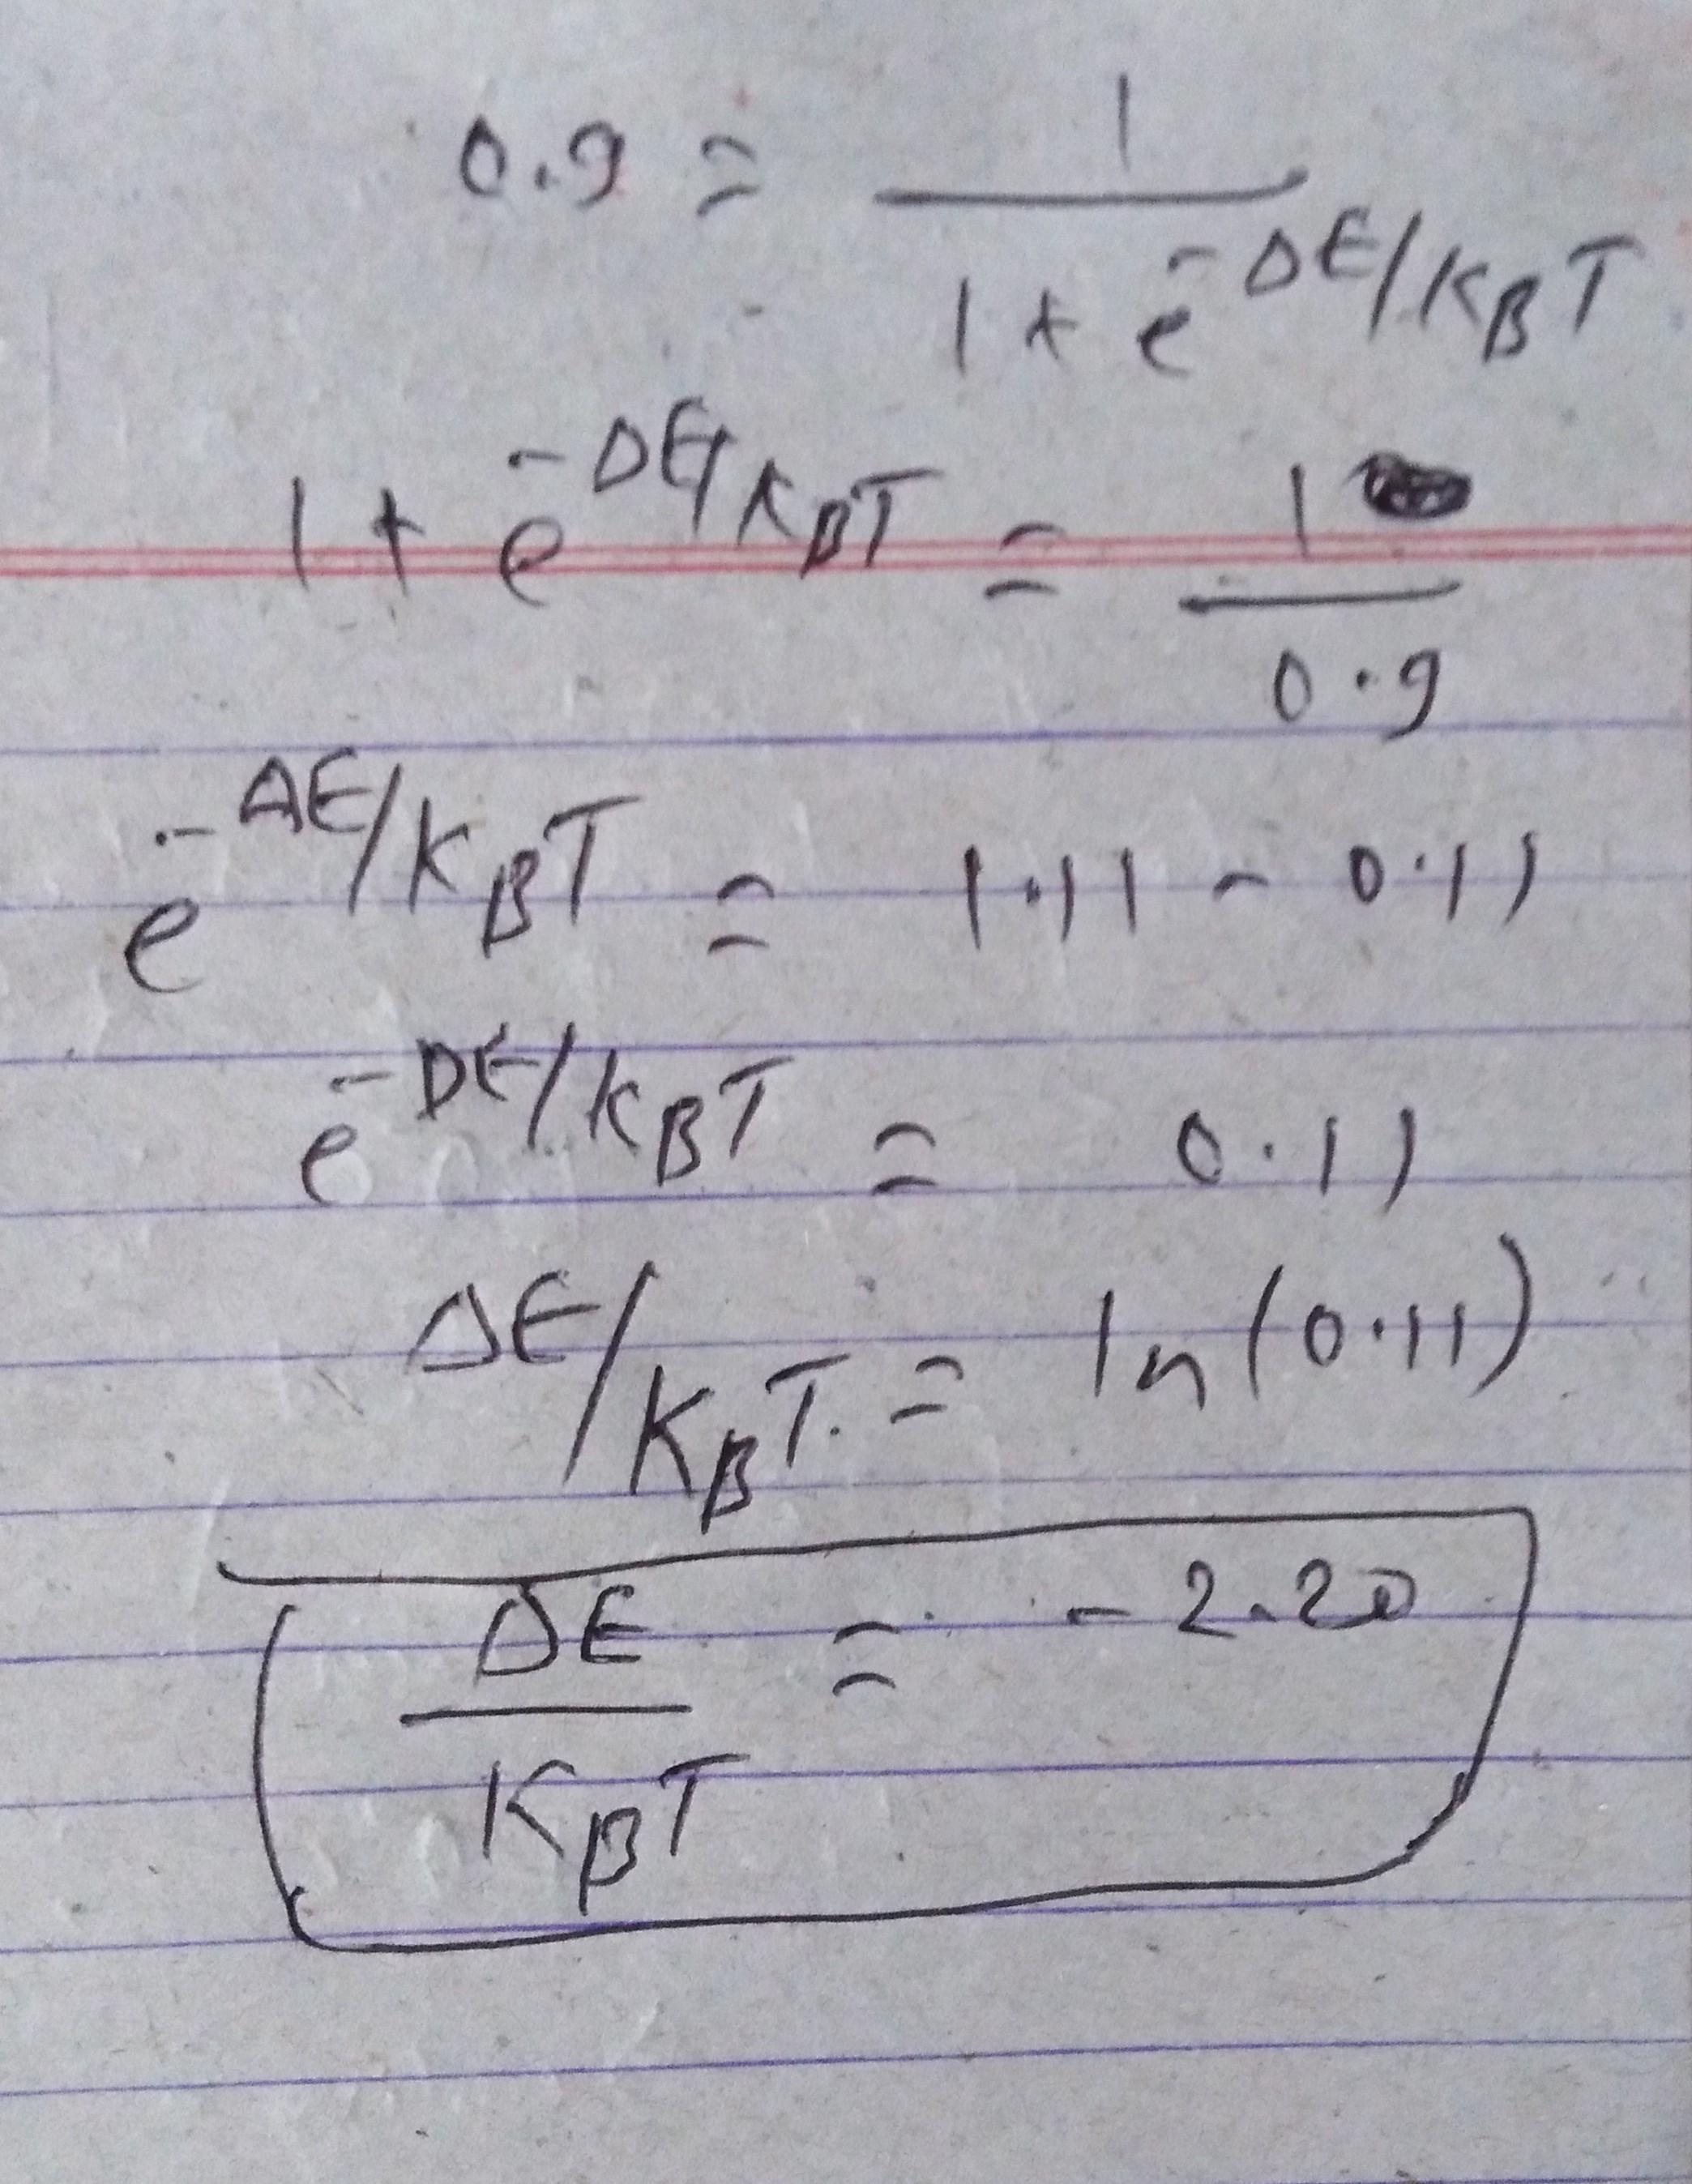 0.9 = 1 / (1 + e^(-ΔE/K_BT))
1 + e^(-ΔE/K_BT) = 1 / 0.9
e^(-ΔE/K_BT) = 1.11 - 0.11
e^(-ΔE/K_BT) = 0.11
ΔE/K_BT. = ln(0.11)
ΔE / K_BT = -2.20